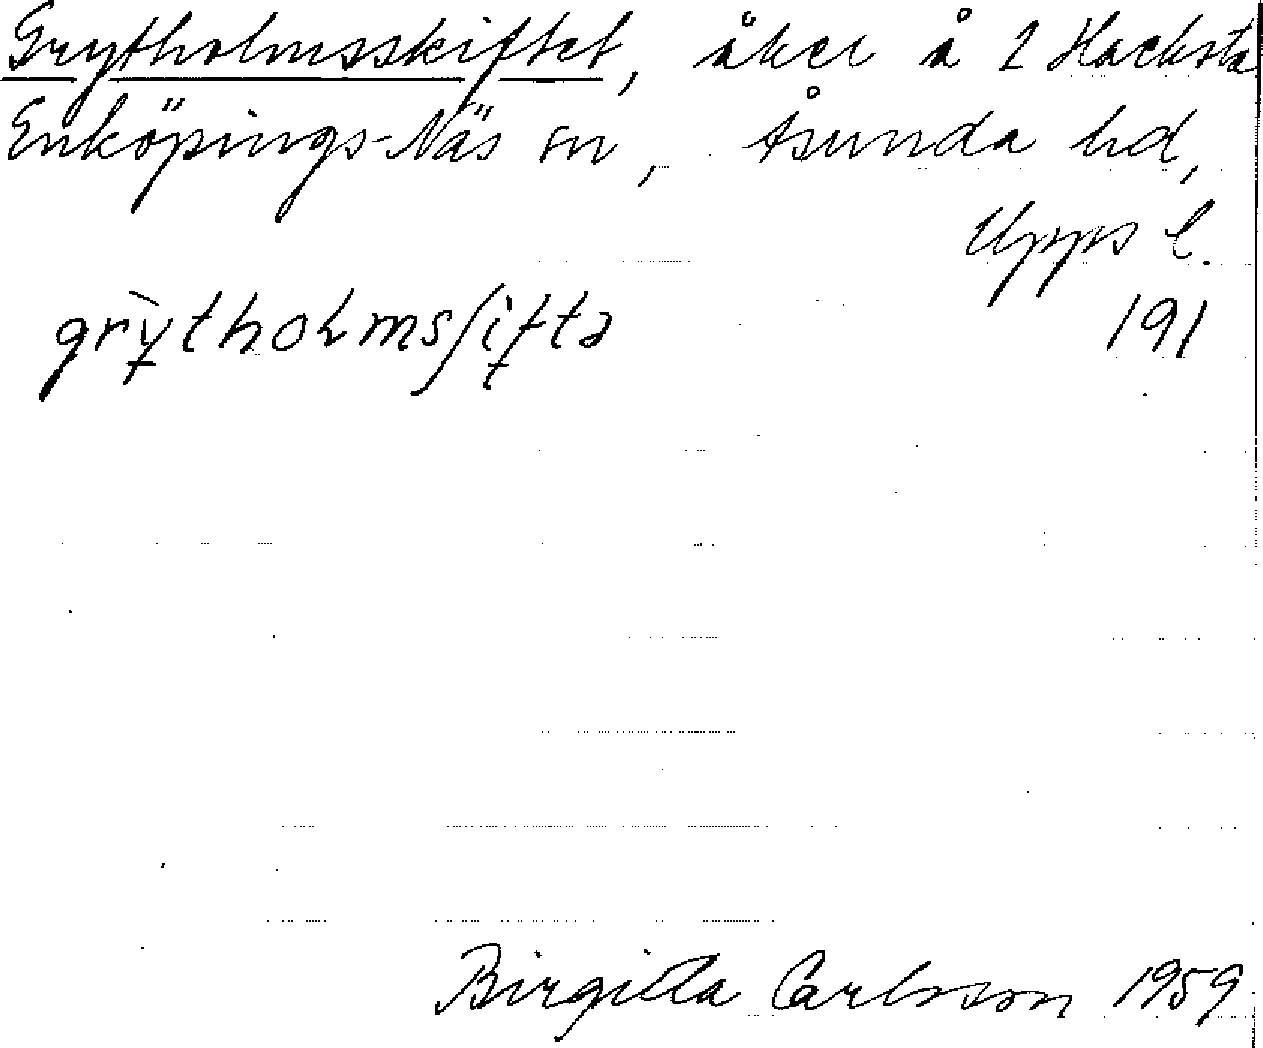 Grytholmsskiftet, åker å 2 Hacksta
Enköpings-Näs sn, Åsunda hd,
Upps l.
grỳtholmsʃifta 191
Birgitta Carlsson 1959